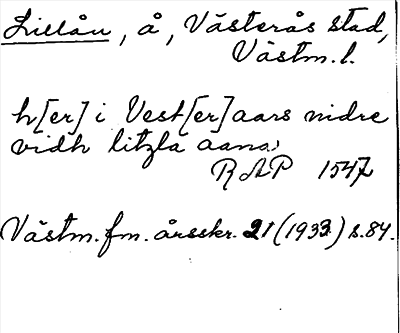 Lillån, å, Västerås stad,
Västm. l.
h[er] i Vest[er]aars nidre
vidh litzla aana,
RAP 1547
Västm. fm. årsskr. 21 (1933) s. 84.